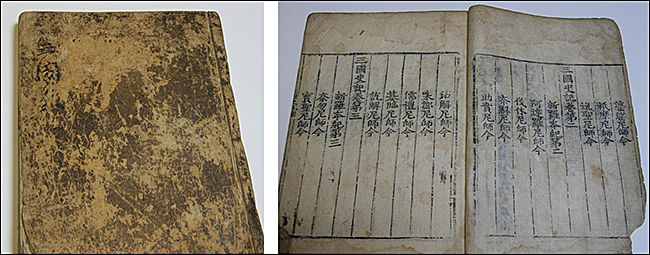 三國
婆娑尼師今
祇摩尼師今
逸聖尼師今
三國史記卷第二
新羅本紀第二
阿達羅尼師今
伐休尼師今
奈解尼師今
助賁尼師今
沾解尼師今
味鄒尼師今
儒禮尼師今
基臨尼師今
訖解尼師今
三國史記卷第三
新羅本紀第三
奈勿尼師今
實聖尼師今